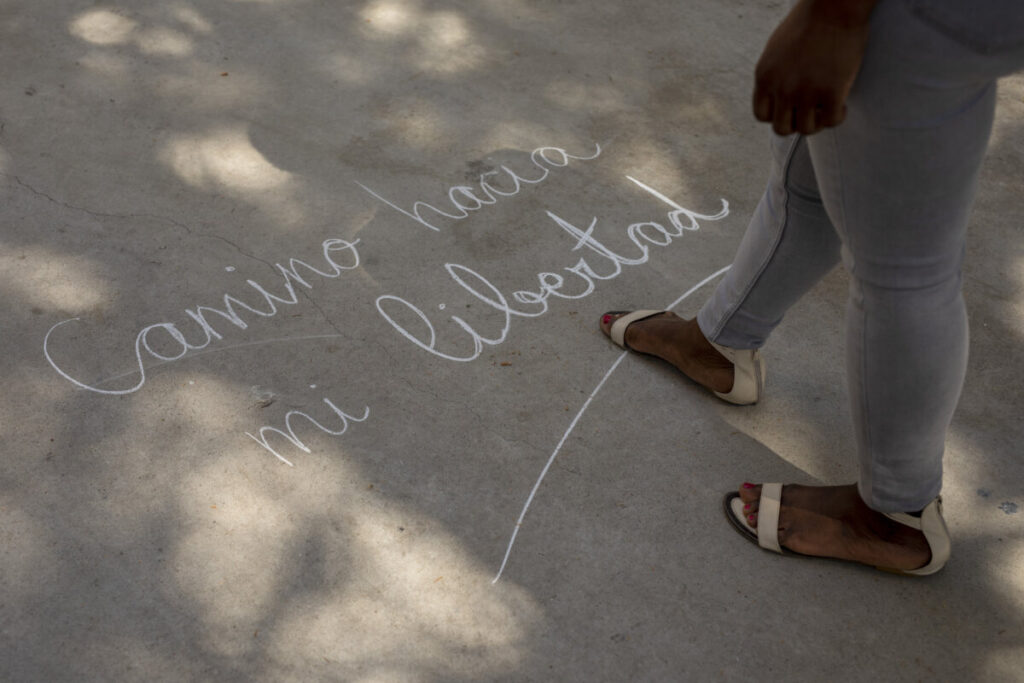 Camino hacia
mi libertad